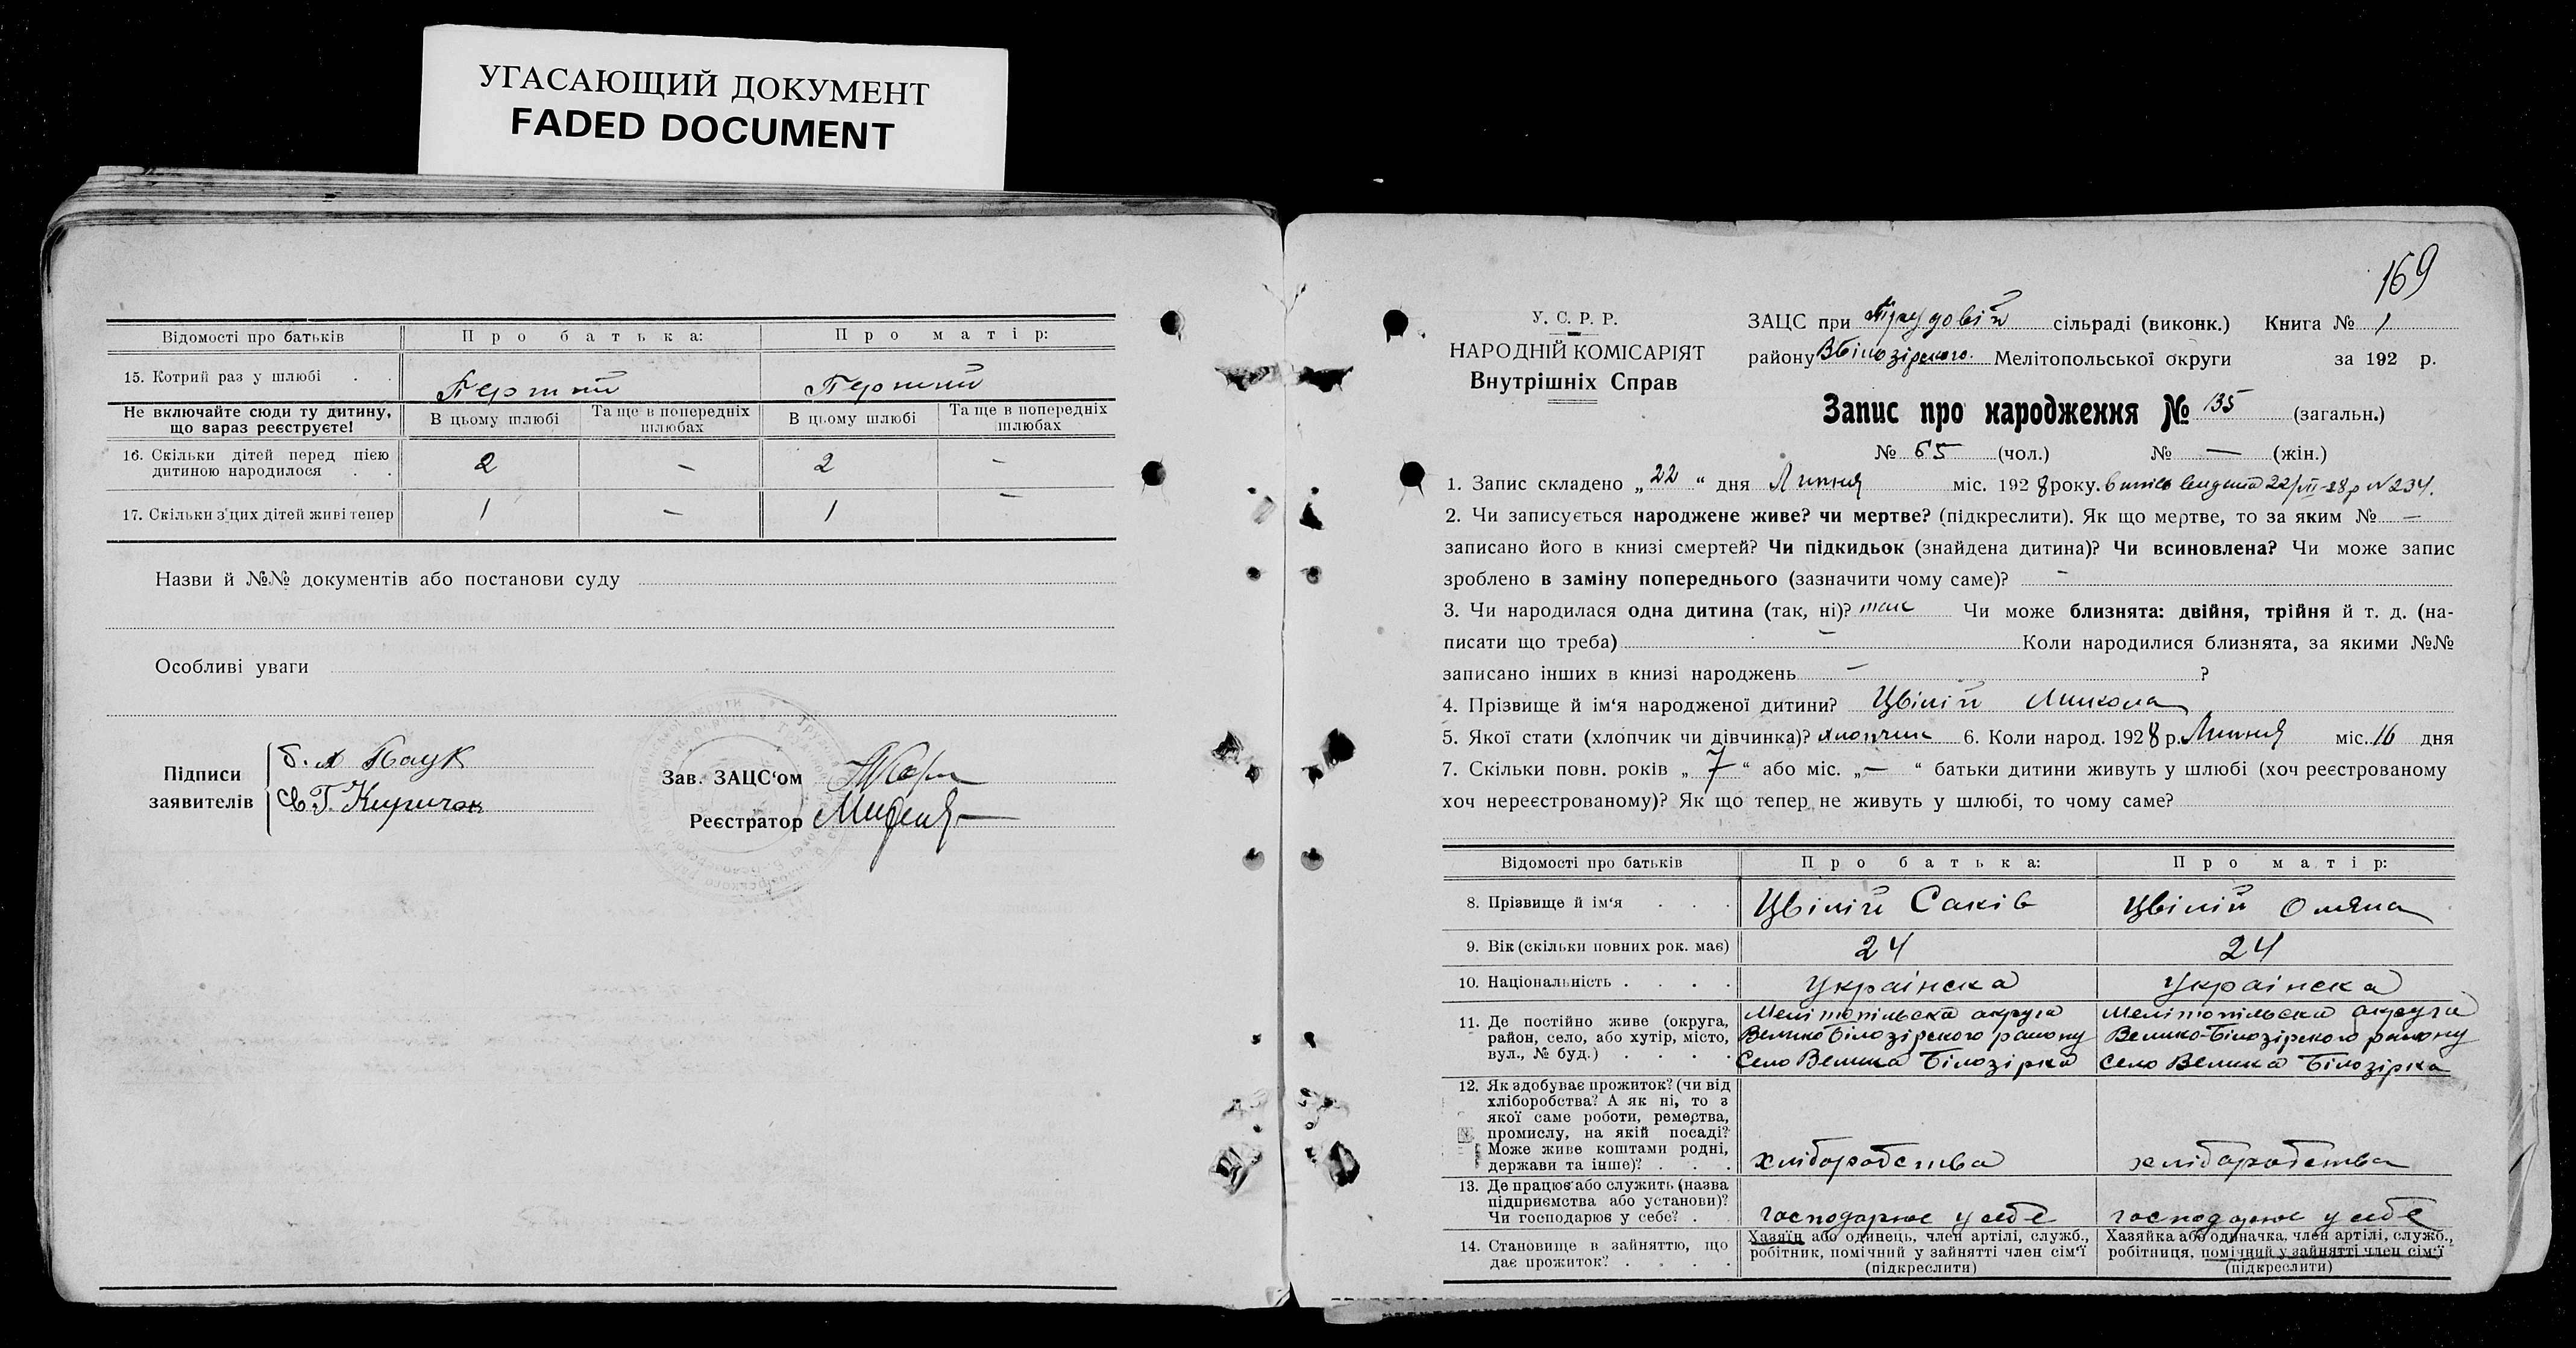 УГАСАЮЩИЙ ДОКУМЕНТ
FADED DOCUMENT
Відомості про батьків Про батька: Про матір:
15. Котрий раз у шлюбі . . Перший Перший
Не включайте сюди ту дитину, що вараз реєструєте! В цьому шлюбі Та ще в попередніх шлюбах В цьому шлюбі Та ще в попередніх шлюбах
16. Скільки дітей перед цією
дитиною народилося . . 2 – 2 –
17. Скільки з'цих дітей живі тепер 1 – 1 –
Назви й №№ документів або постанови суду
Особливі уваги
Підписи
заявителів
Зав. ЗАЦС'ом
Реєстратор
169
У. С. Р. Р.
НАРОДНІЙ КОМІСАРІЯТ
Внутрішніх Справ
ЗАЦС при Трудовій сільраді (виконк.) Книга № 1
району ВБілозірського. Мелітопольської округи за 192 р.
Запис про народження № 135 (загальн.)
№ 65 (чол.) № — (жін.)
1. Запис складено „ 22 “ дня Липня міс. 1928 року. 22/VII-28р N 234.
2. Чи записується народжене живе? чи мертве? (підкреслити). Як що мертве, то за яким № –
записано його в книзі смертей? Чи підкидьок (знайдена дитина)? Чи всиновлена? Чи може запис
зроблено в заміну попереднього (зазначити чому саме)? –
3. Чи народилася одна дитина (так, ні)? так Чи може близнята: двійня, трійня й т. д. (на-
писати що треба) – Коли народилися близнята, за якими №№
записано інших в книзі народжень – ?
4. Прізвище й ім'я народженої дитини? Цвілій Микола
5. Якої стати (хлопчик чи дівчинка)? хлопчик 6. Коли народ. 1928 р. Липня міс. 16 дня
7. Скільки повн. років „ 7 “ або міс. „ — “ батьки дитини живуть у шлюбі (хоч реєстрованому
хоч нереєстрованому)? Як що тепер не живуть у шлюбі, то чому саме?
Відомості про батьків Про батька: Про матір:
8. Прізвище й ім'я . . . Цвілій Саків Цвілій
9. Вік (скільки повних рок. має) 24 24
10. Національність . . . . Українска Українска
11. Де постійно живе (округа,
район, село, або хутір, місто,
вул., № буд.) . . . .
Мелітопільска округа
Велико Білозірского району
Село Велика Білозірка
Мелітопільска округа
Велико-Білозірского району
Село Велика Білозірка
12. Як здобуває прожиток? (чи від
хліборобства? А як ні, то з
якої саме роботи, ремества,
промислу, на якій посаді?
Може живе коштами родні,
держави та інше)? . . .
хліборобства хліборобства
13. Де працює або служить (назва
підприємства або установи)?
Чи господарює у себе? . господарює у себе господарює у себе
14. Становище в зайняттю, що
дає прожиток? . . . .
Хазяїн або одинець, член артілі, служб.,
робітник, помічний у зайнятті член сім'ї
(підкреслити)
Хазяйка або одиначка, член артілі, служб.,
робітниця, помічний у зайнятті член сім'ї
(підкреслити)